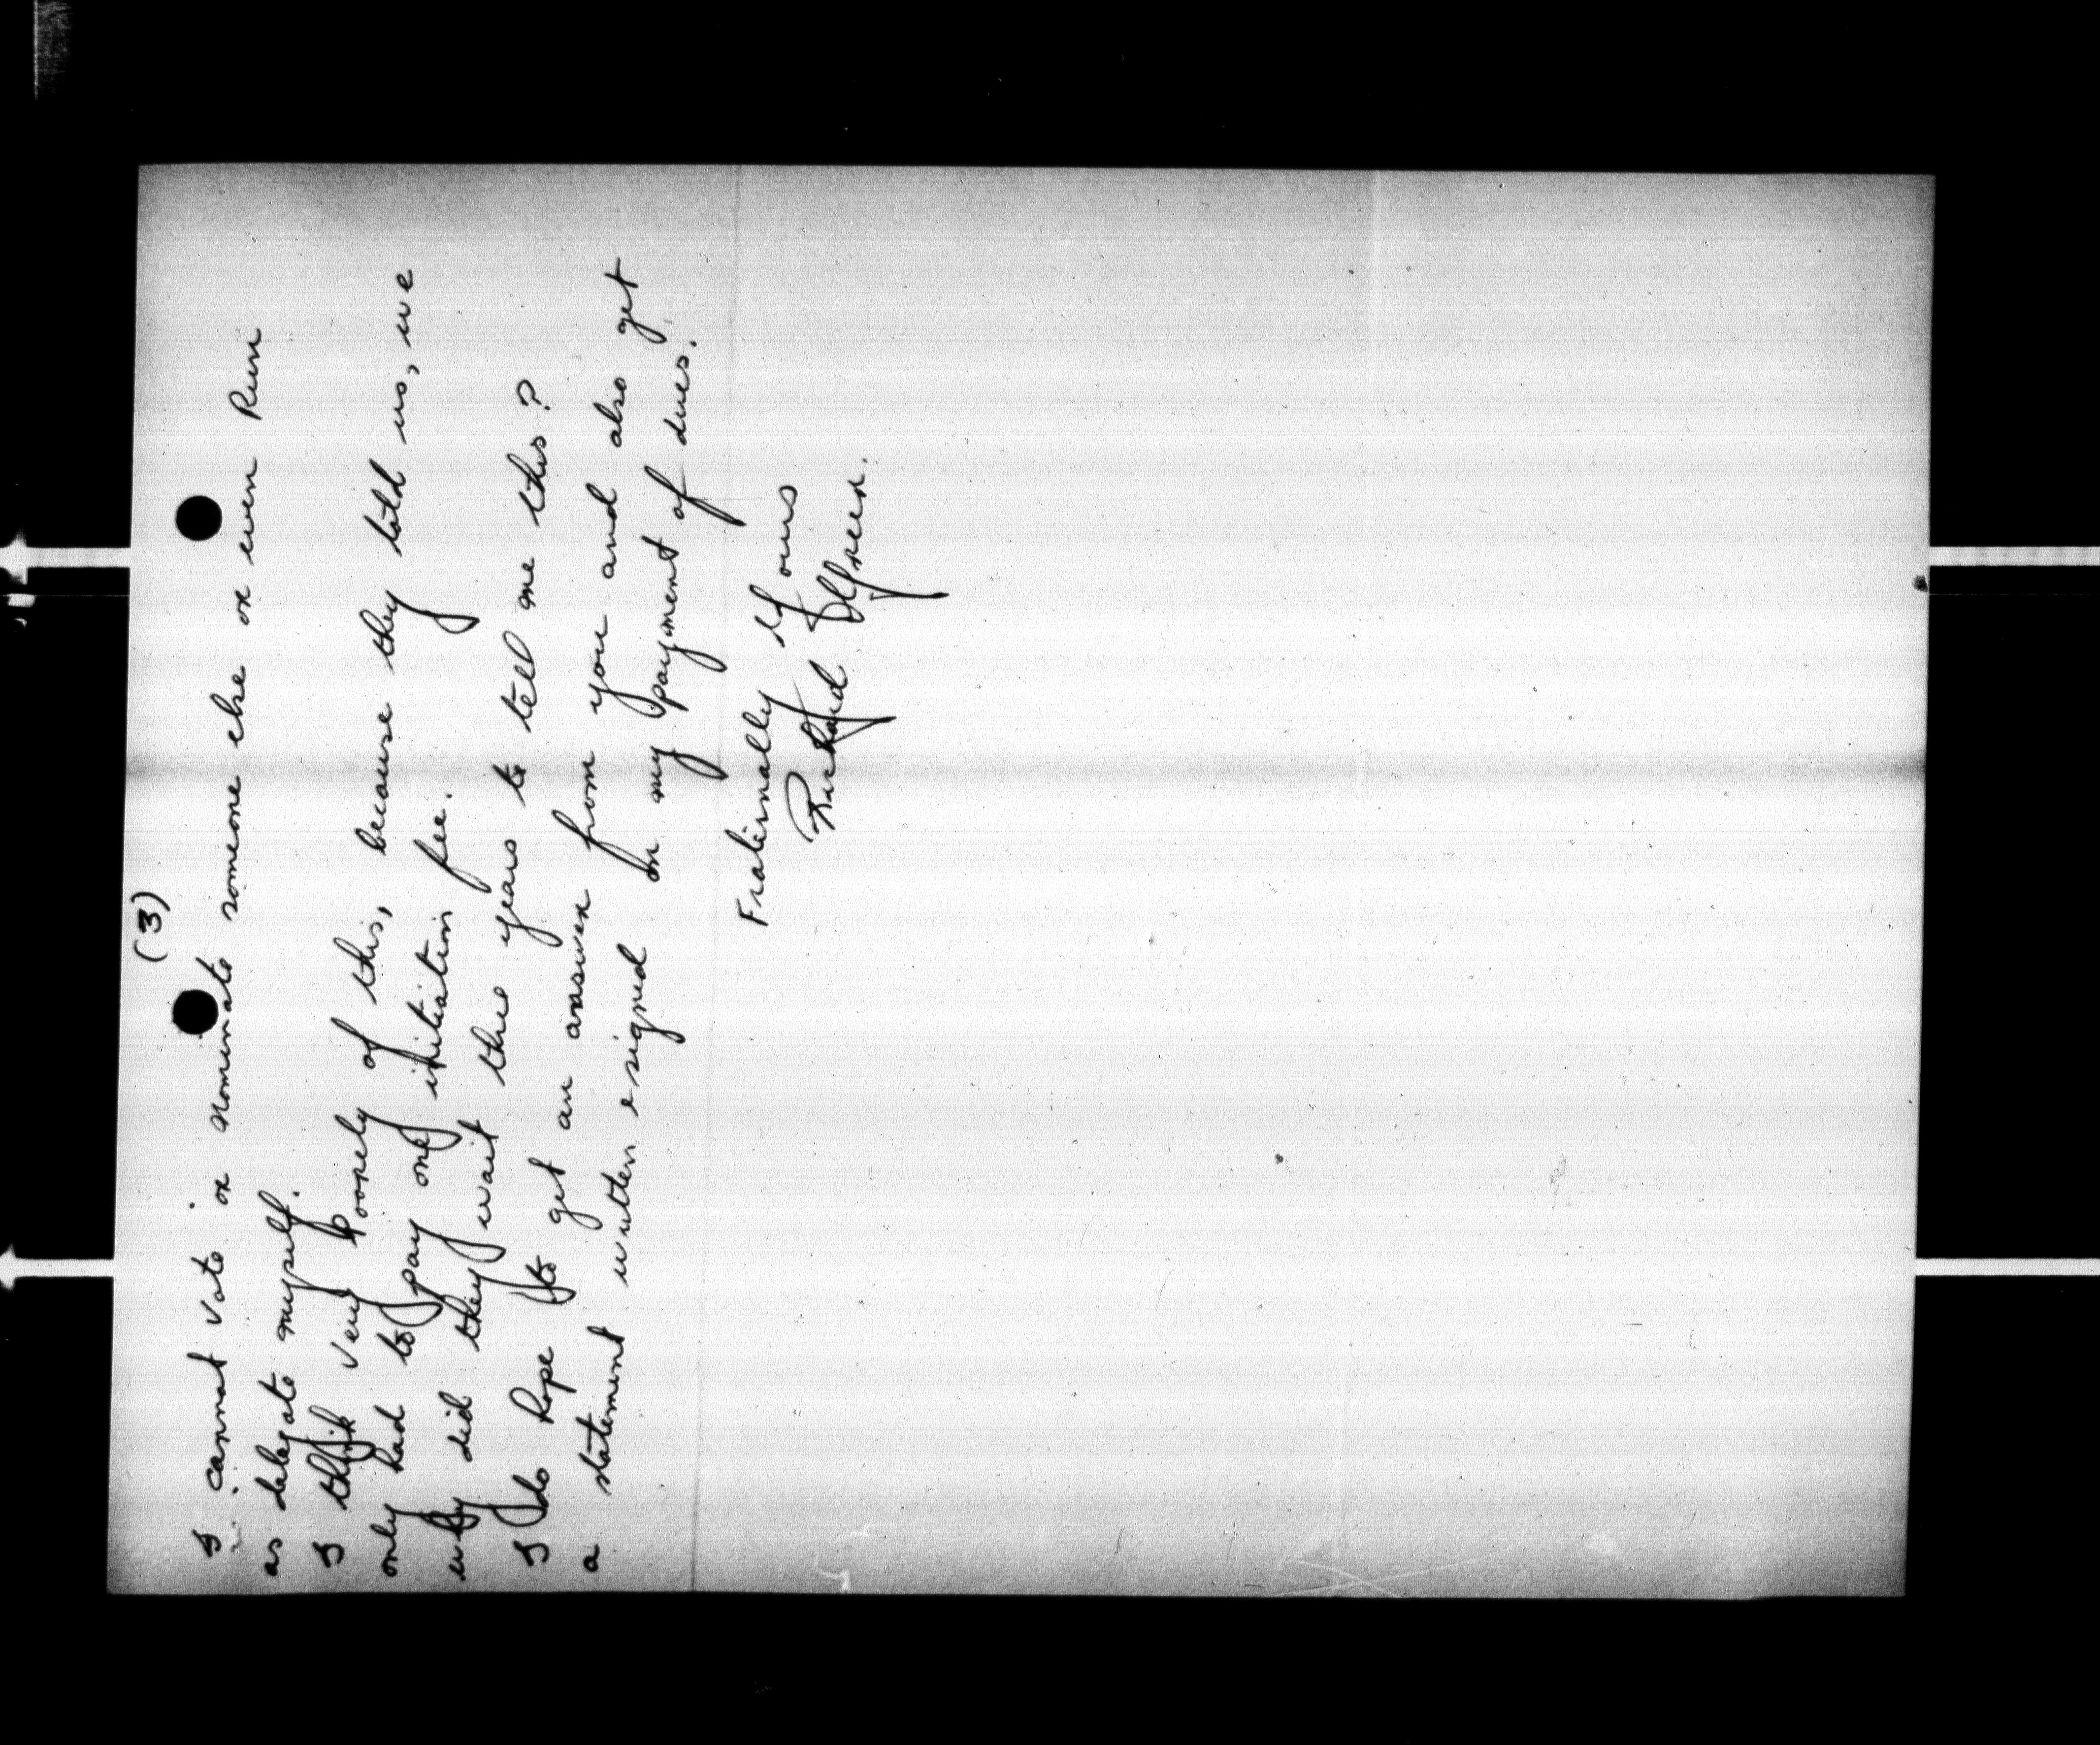 (3)
I cannot vote or nominate someone else or even Run
as delegate myself.
I think very poorely of this, because they told us, we
only had to pay one initiation fee.
why did they wait this years to tell me this?
I do hope to get an answer from you and also get
a statement written & signed on my payment of dues.
Fraternally Yours
Richard